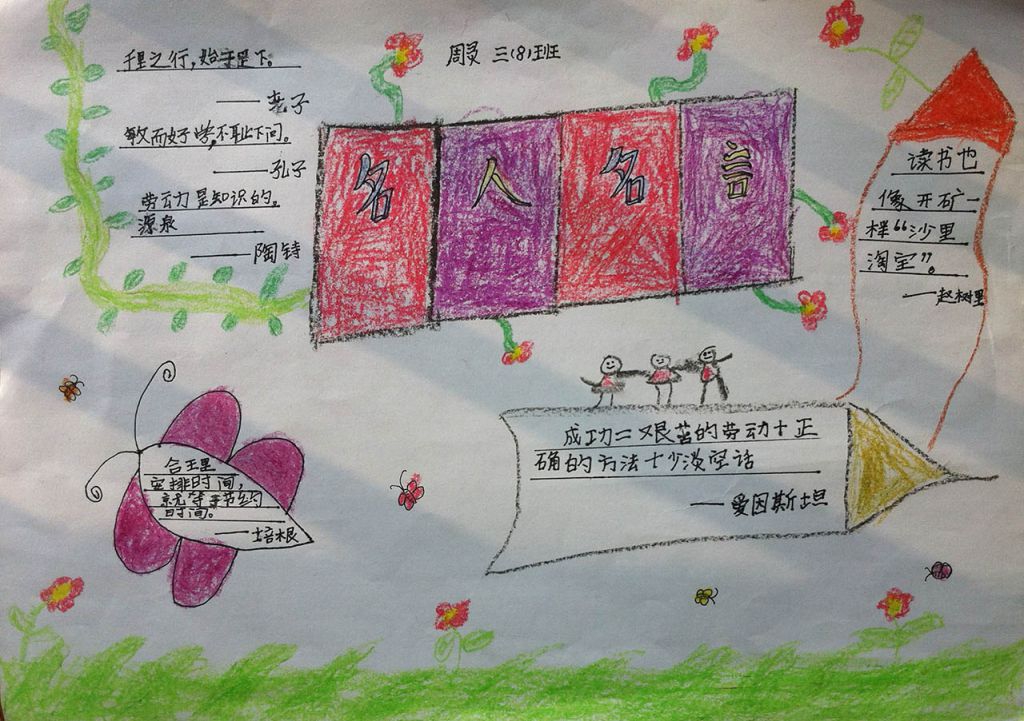 千里之行,始于足下。
——老子
敏而好学,不耻下问。
——孔子
劳动力是知识的。
源泉
——陶铸
周灵 三(8)班
名人名言
读书也
像开矿一
样“沙里
淘宝”。
——赵树里
合理
安排时间,
就等于节约
时间。
——培根
成功=艰苦的劳动+正
确的方法+少淡空话
——爱因斯坦